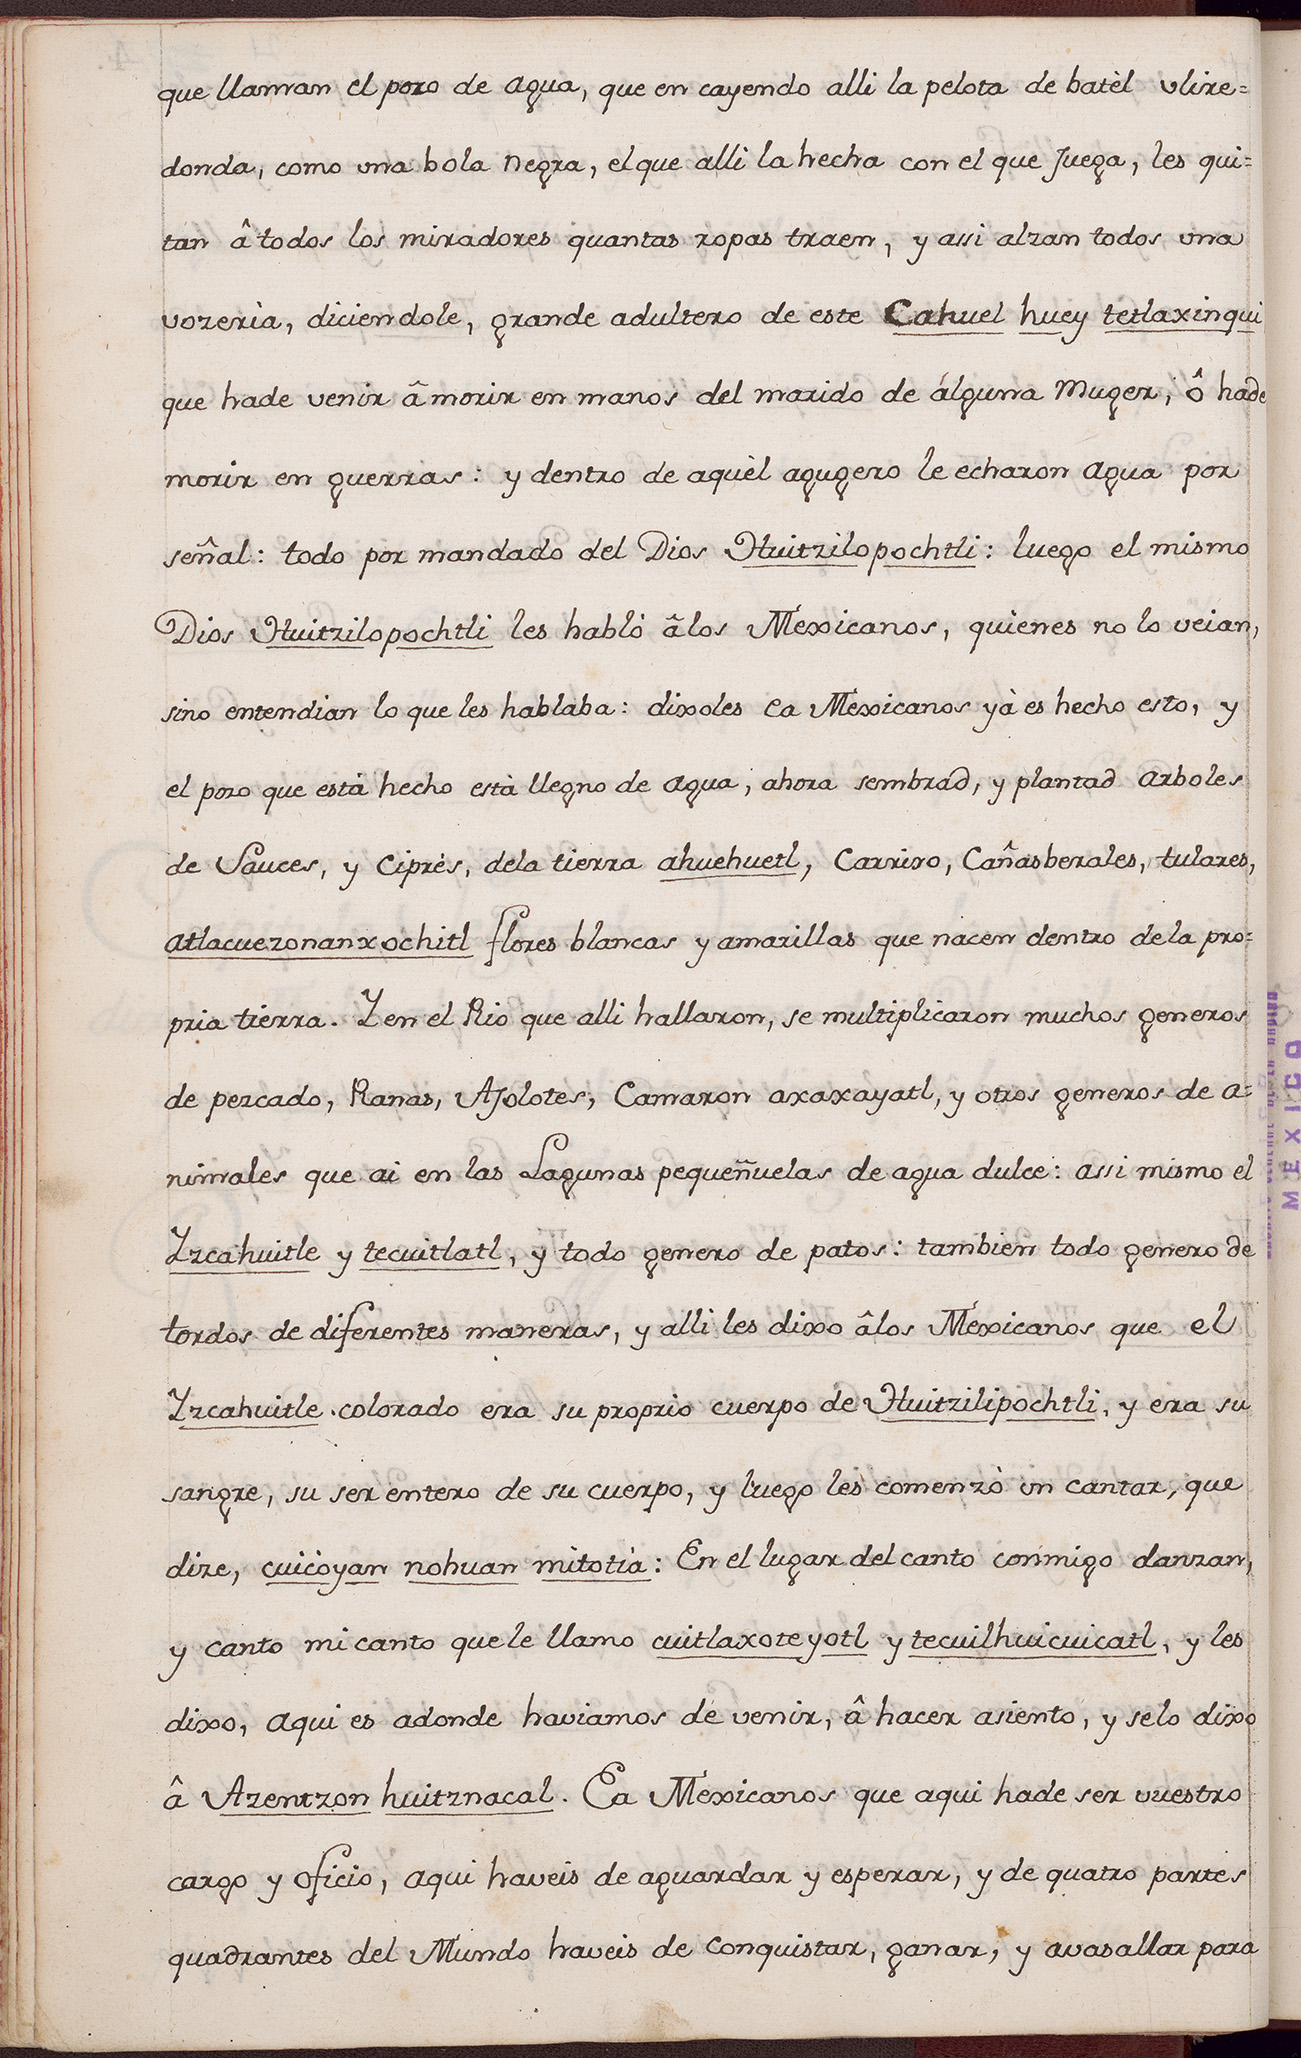 que llaman el pozo de agua, que en cayendo alli la pelota de batèl vlire=
donda, como una bola negra, el que alli la hecha con el que Juega, les qui=
tan â todos los miradores quantas ropas traen, y assi alzan todos una
vozerìa, diciendole, grande adultero de este Cahuel huey tetlaxinqui
que hade venir â morir en manos del marido de álguna Muger, ô hade
morir en guerras: y dentro de aquèl agugero le echaron agua por
señal: todo por mandado del Dios Huitzilopochtli: luego el mismo
Dios Huitzilopochtli les hablò â los Mexicanos, quienes no lo veian,
sino entendian lo que les hablaba: dixoles ea Mexicanos yà es hecho esto, y
el pozo que està hecho està llegno de agua, ahora sembrad, y plantad arboles
de Sauces, y Ciprès, dela tierra ahuehuetl, Carrizo, Cañasberales, tulares,
atlacuezonanxochitl flores blancas y amarillas que nacen dentro dela pro=
pria tierra. Y en el Rio que alli hallaron, se multiplicaron muchos generos
de pezcado, Ranas, AJolotes, Camaron axaxayatl, y otros generos de a=
nimales que ai en las Lagunas pequeñuelas de agua dulce: assi mismo el
Yzcahuitle y tecuitlatl, y todo genero de patos: tambien todo genero de
tordos de diferentes maneras, y alli les dixo âlos Mexicanos que el
Yzcahuitle colorado era su proprio cuerpo de Huitzilipochtli, y era su
sangre, su ser entero de su cuerpo, y luego les comenzò un cantar, que
dize, cuicoyan nohuan mitotia: En el lugar del canto conmigo danzan,
y canto mi canto que le llamo cuitlaxoteyotl y tecuilhuicuicatl, y les
dixo, aqui es adonde haviamos de venir, â hacer asiento, y selo dixo
â Azentzon huitznacal. Ea Mexicanos que aqui hade ser vuestro
cargo y oficio, aqui haveis de aguardar y esperar, y de quatro partes
quadrantes del Mundo haveis de conquistar, ganar, y avasallar para
MEXICO